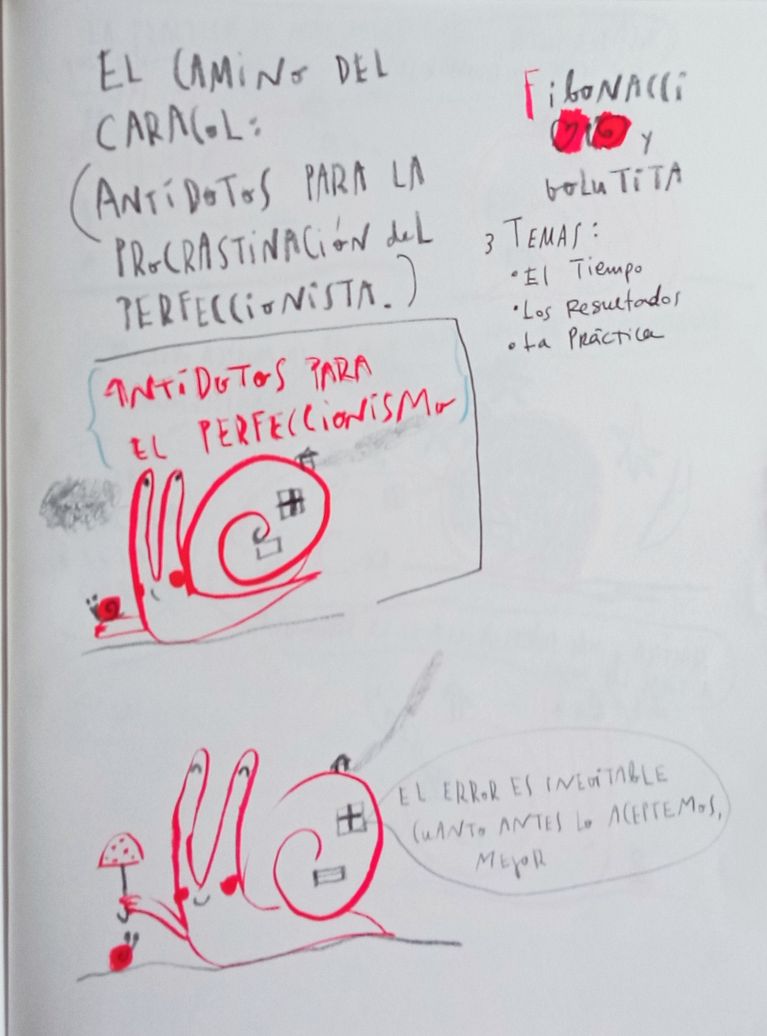 EL CAMINO DEL
CARACOL:
(ANTÍDOTOS PARA LA
PROCRASTINACIÓN DEL
PERFECCIONISTA.)
FIBONACCI
y
VOLUTITA
3 TEMAS:
• El Tiempo
• Los Resultados
• La Práctica
ANTÍDOTOS PARA
EL PERFECCIONISMO
EL ERROR ES INEVITABLE
CUANTO ANTES LO ACEPTEMOS,
MEJOR